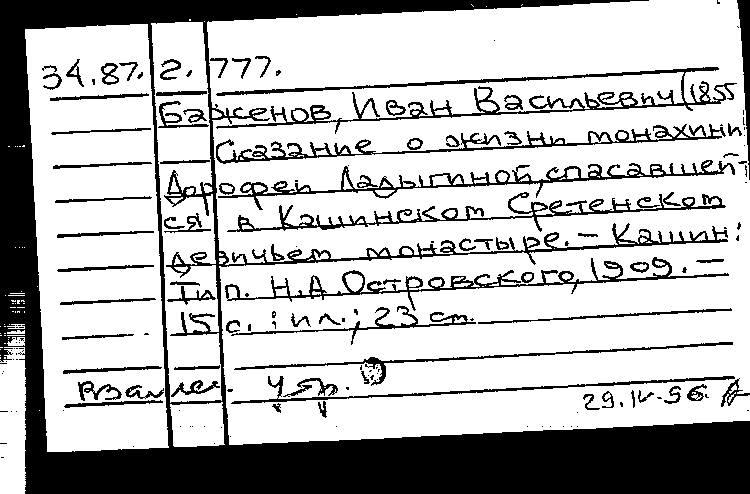 34.87.2.777.
Баженов, Иван Васильевич (1855
Сказание о жизни монахини
Дорофеи Ладыгиной, спасавшей-
ся в Кашинском Сретенском
девичьем монастыре. – Кашин:
Тип. Н.А. Островского, 1909. –
15 с. : ил.; 23 см.
29.IV.96.